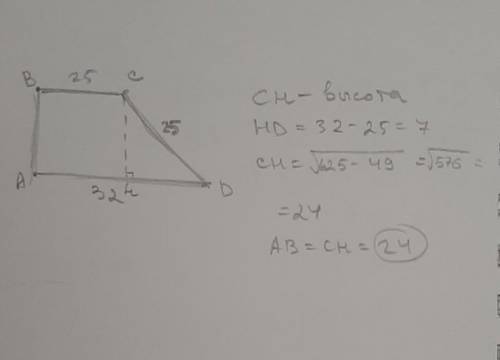 B 25 C
25
A 32 H D
CH – высота
HD = 32 – 25 = 7
CH = √625 – 49 = √576 =
= 24
AB = CH = 24